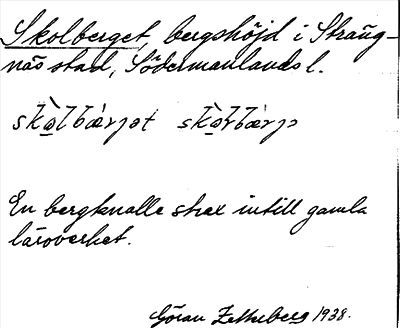 Skolberget, bergshöjd i Sträng-
näs stad, Södermanlands l.
En bergknalle strax intill gamla
läroverket.
Göran Zetterberg 1938.